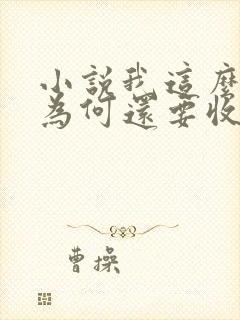 小說我這麼
為何還要收
曹操